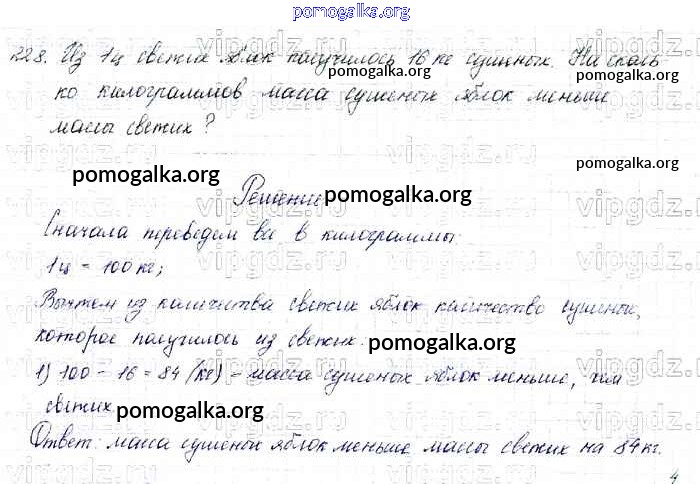 pomogalka.org
228. Из 1ц свежих яблок получилось 16 кг сушеных. На сколь
pomogalka.org pomogalka.org
ко килограммов масса сушеных яблок меньше
массы свежих?
pomogalka.org
pomogalka.org
Решение pomogalka.org
Сначала переведем все в килограммы:
1ц = 100кг;
Вычтем из количества свежих яблок количество сушеных,
которое получилось из свежих.
pomogalka.org
1) 100 - 16 = 84 (кг) - масса сушеных яблок меньше, чем
свежих pomogalka.org
Ответ: масса сушеных яблок меньше массы свежих на 84кг.
pomogalka.org
4